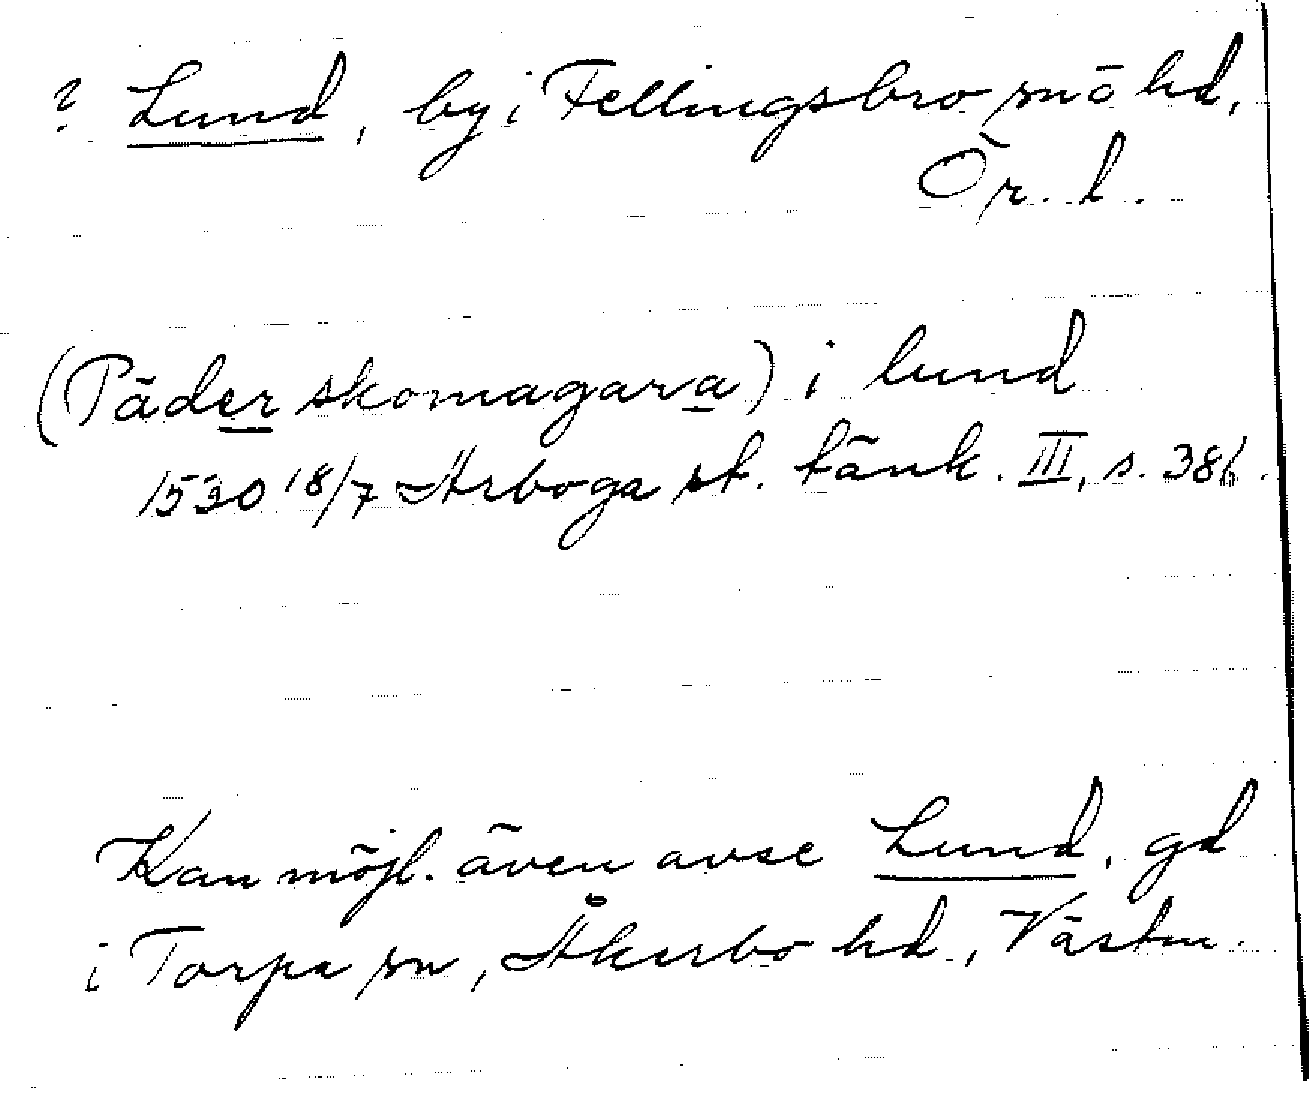 ? Lund, by i Fellingsbro sn o hd,
Ör. l.
(Päder skomagara) i lund
1530 18/7 Arboga st. tänk. III, s. 386.
Kan möjl. även avse Lund, gd
i Torpa sn, Åkerbo hd, Västm.